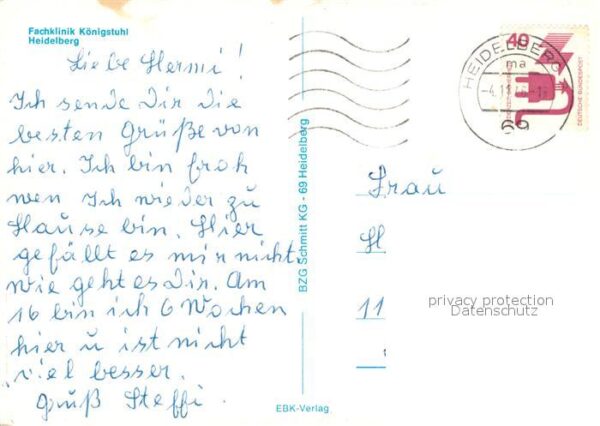 Fachklinik Königstuhl
Heidelberg
Liebe Hermi!
Ich sende Dir die
besten Grüße von
hier. Ich bin froh
wen Ich wieder zu
Hause bin. Hier
gefällt es mir nicht.
wie geht es Dir. Am
16 bin ich 6 Wochen
hier u ist nicht
viel besser.
Gruß Steffi.
BZG Schmitt KG - 69 Heidelberg
EBK-Verlag
HEIDELBERG
ma
69
40
DEUTSCHE BUNDESPOST
Frau
H
11
privacy protection
Datenschutz